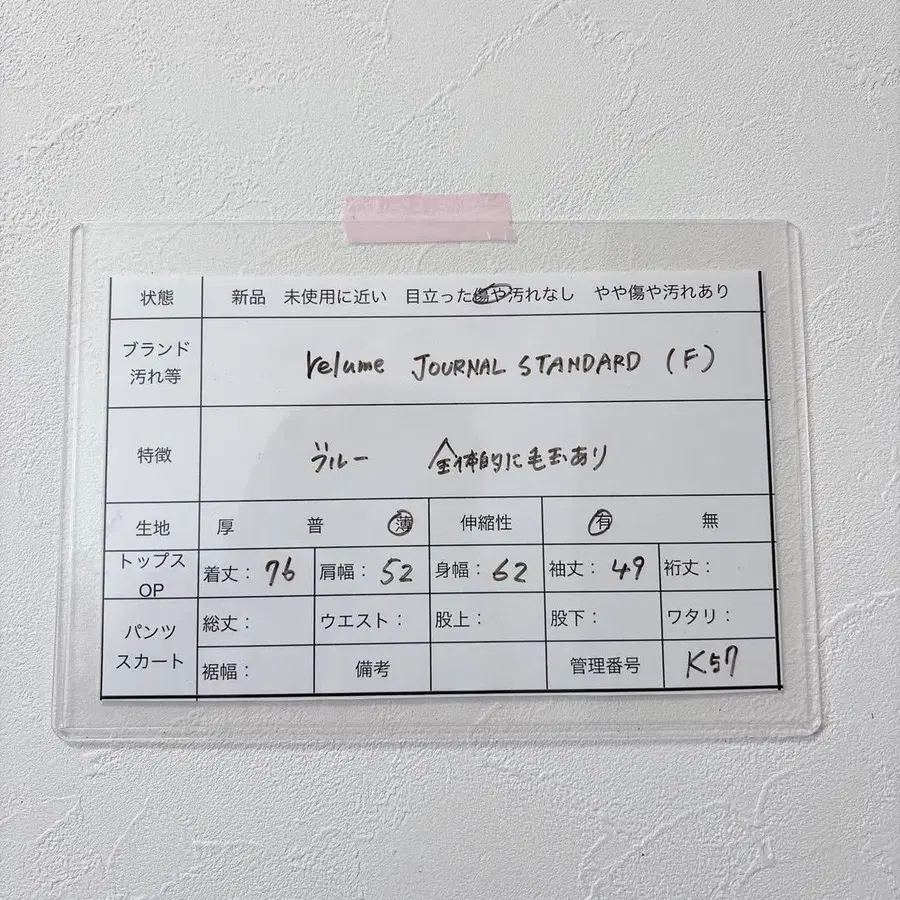 状態 新品 未使用に近い 目立った傷や汚れなし やや傷や汚れあり
ブランド
汚れ等
relume JOURNAL STANDARD (F)
特徴 ブルー 全体的に毛玉あり
生地 厚 普 薄 伸縮性 有 無
トップス
OP
着丈： 76 肩幅： 52 身幅： 62 袖丈： 49 裄丈：
パンツ
スカート
総丈： ウエスト： 股上： 股下： ワタリ：
裾幅： 備考 管理番号 K57